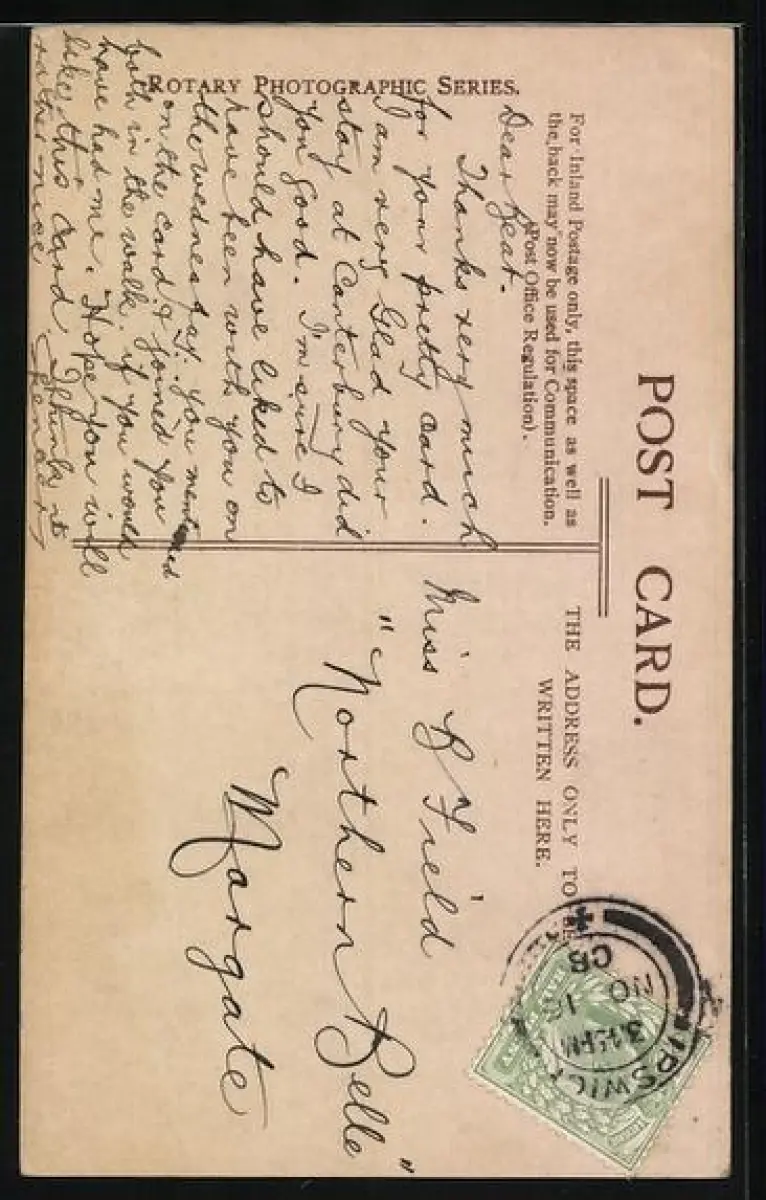 POST CARD.
For Inland Postage only, this space as well as
the back may now be used for Communication.
(Post Office Regulation).
THE ADDRESS ONLY TO BE
WRITTEN HERE.
ROTARY PHOTOGRAPHIC SERIES.
Dear Beat.
Thanks very much
for your pretty card.
I am very Glad your
stay at Canterbury did
you good. I'm sure I
should have liked to
have been with you on
the wednesday. you mentioned
on the card & joined you
both in the walk. if you would
have had me. Hope you will
like this card. I think it
rather nice
Miss B Field
"Northern Belle"
Margate
IPSWICH
3.15PM
NO 16
CB